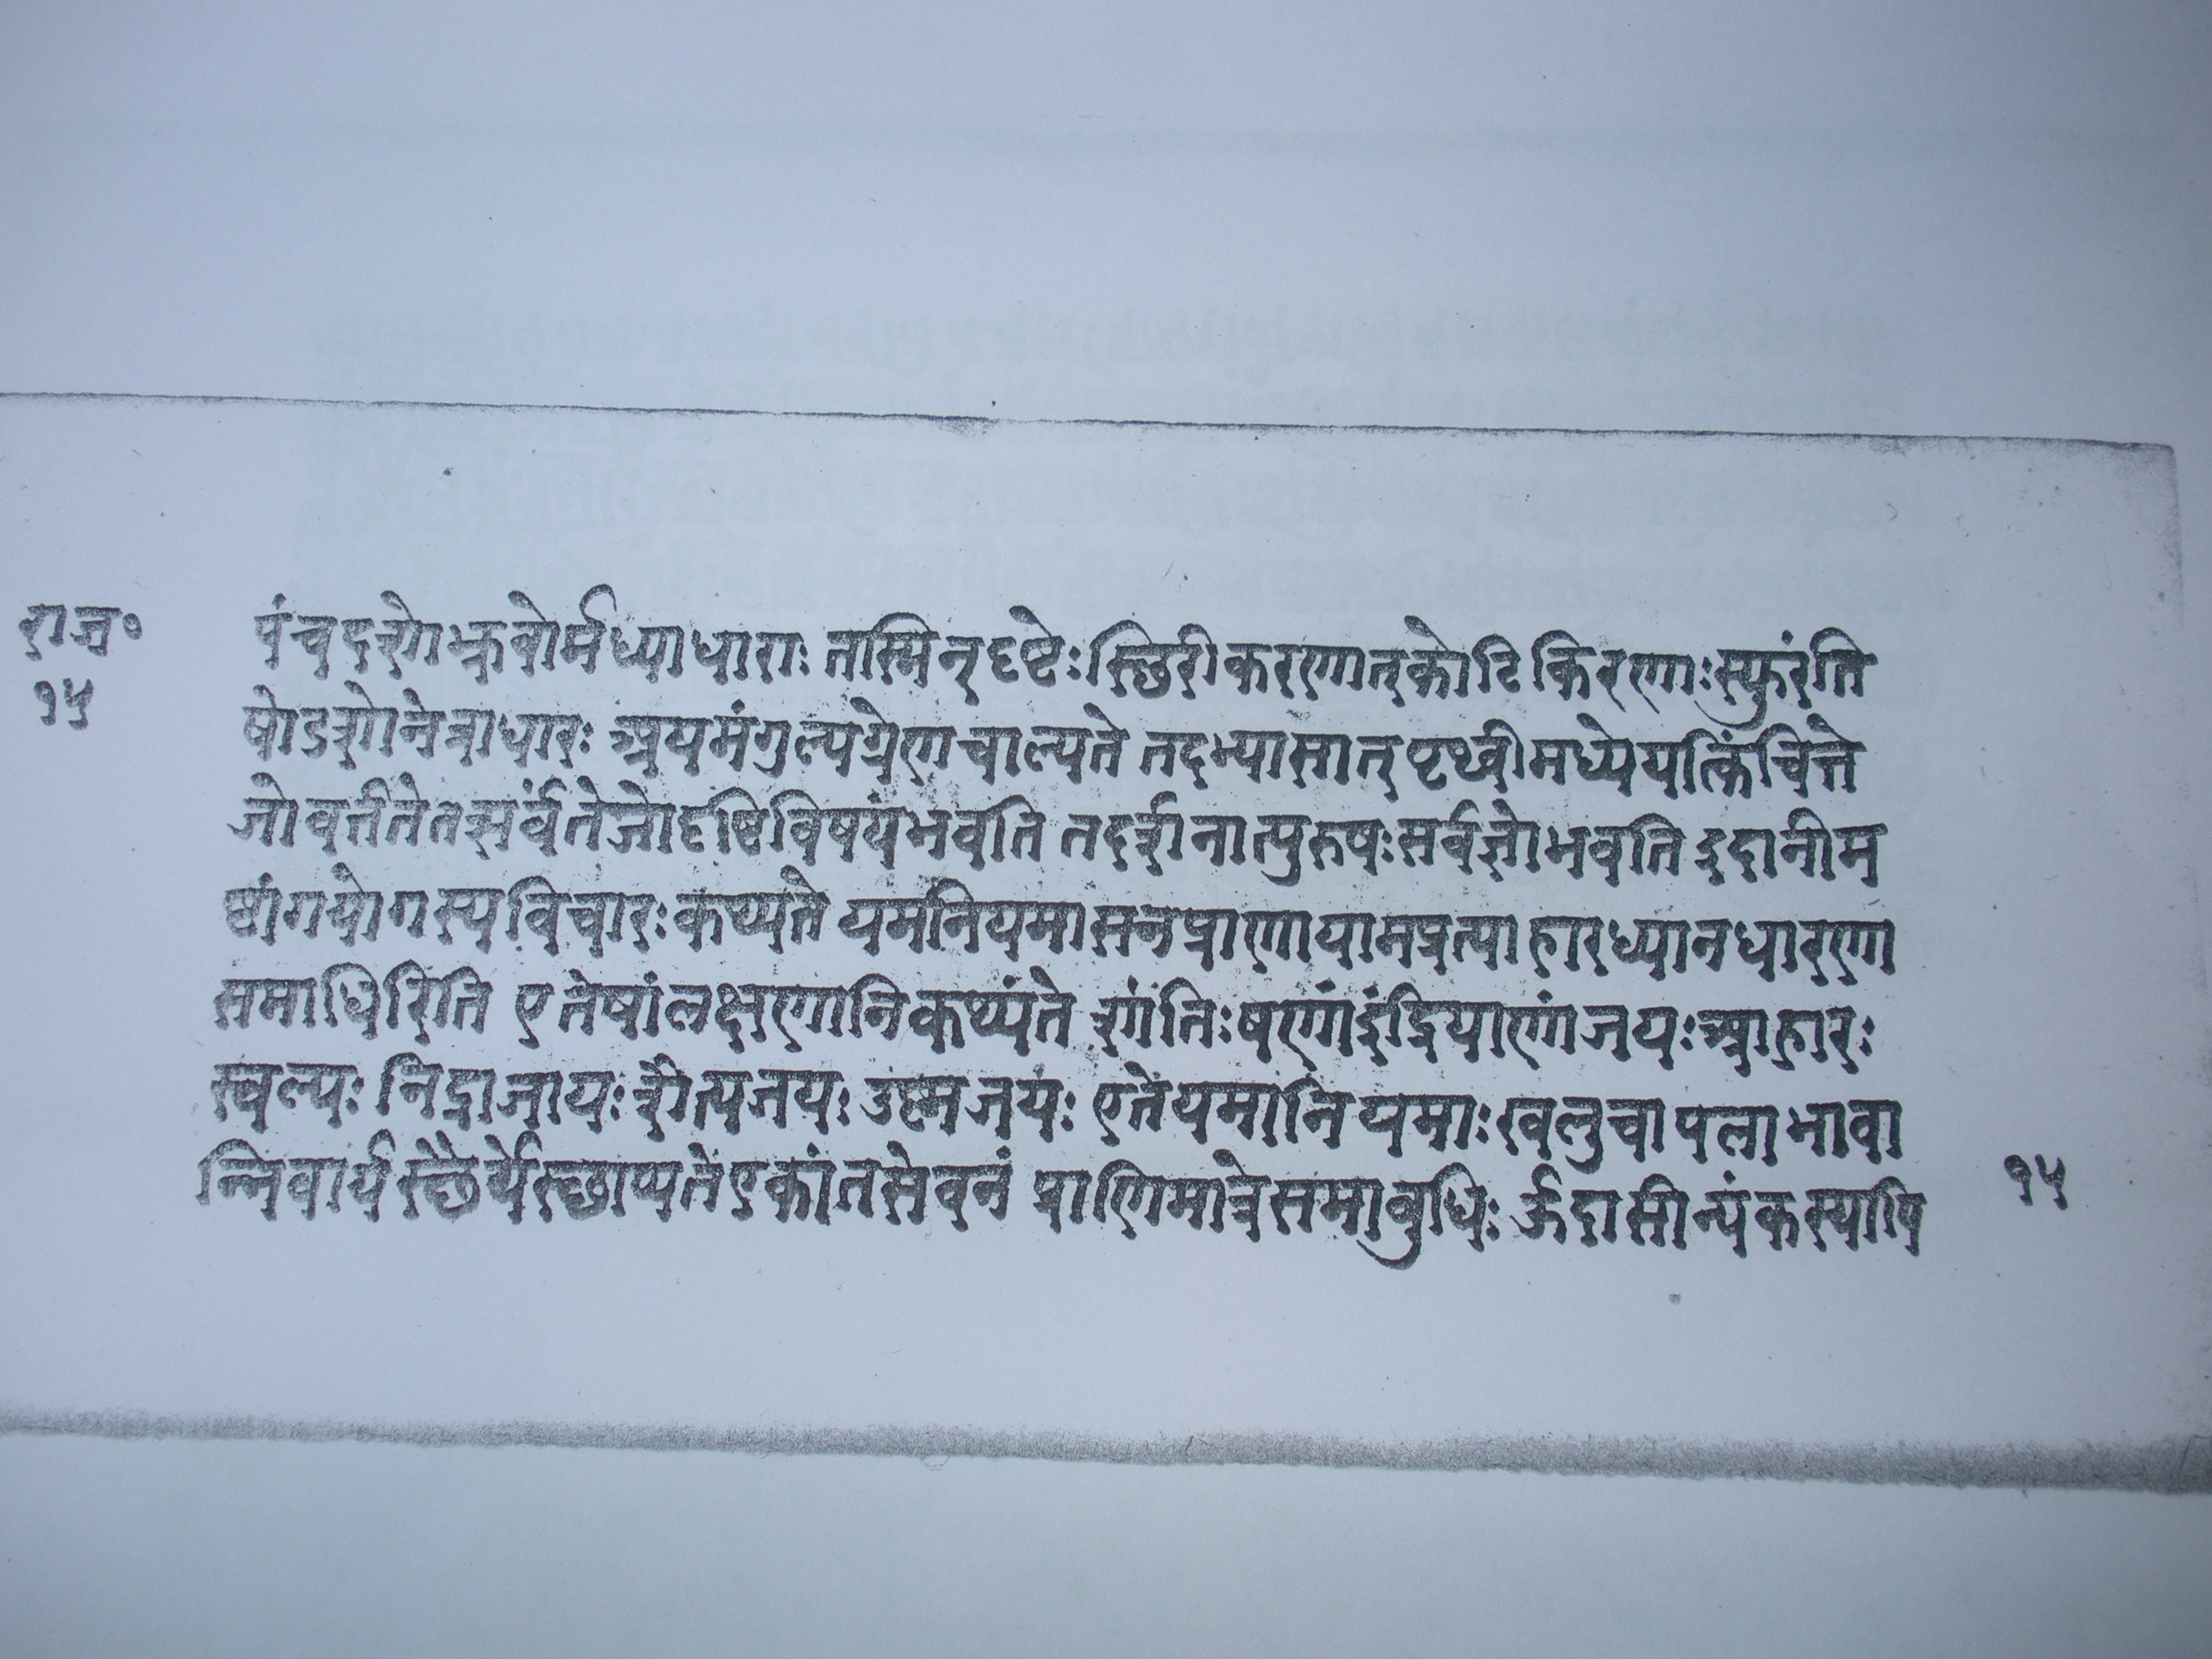 राज॰
१५
पंचदशो भ्रुवोर्मध्याधाराः तस्मिन् दृष्टेः स्छिरीकरणात् कोटि किरणाः स्फुरंति
षोडशो नेत्राधारः अयमंगुल्यग्रेण चाल्यते तदभ्यासात् पृथ्वीमध्ये यत्किंचित्ते
जो वर्त्तते तत्सर्वं तेजो दृष्टिविषयं भवति तदर्शनात्पुरुषः सर्वज्ञो भवति इदानीम
ष्टांगयोगस्य विचारः कथ्यते यमनियमासनप्राणायामप्रत्याहारध्यानधारणा
समाधिरिति एतेषां लक्षणानि कथ्यंते शांतिः षणां इंद्रियाणां जयः आहारः
स्वल्पः निद्राजायः शैत्यजयः उष्मजयः एते यमा नियमाः खलु चापलाभावा
न्निवार्य स्छैर्ये स्छाप्यते एकांतसेवनं प्राणिमात्रे समाबुधिः ऊदासीन्यं कस्यापि
१५